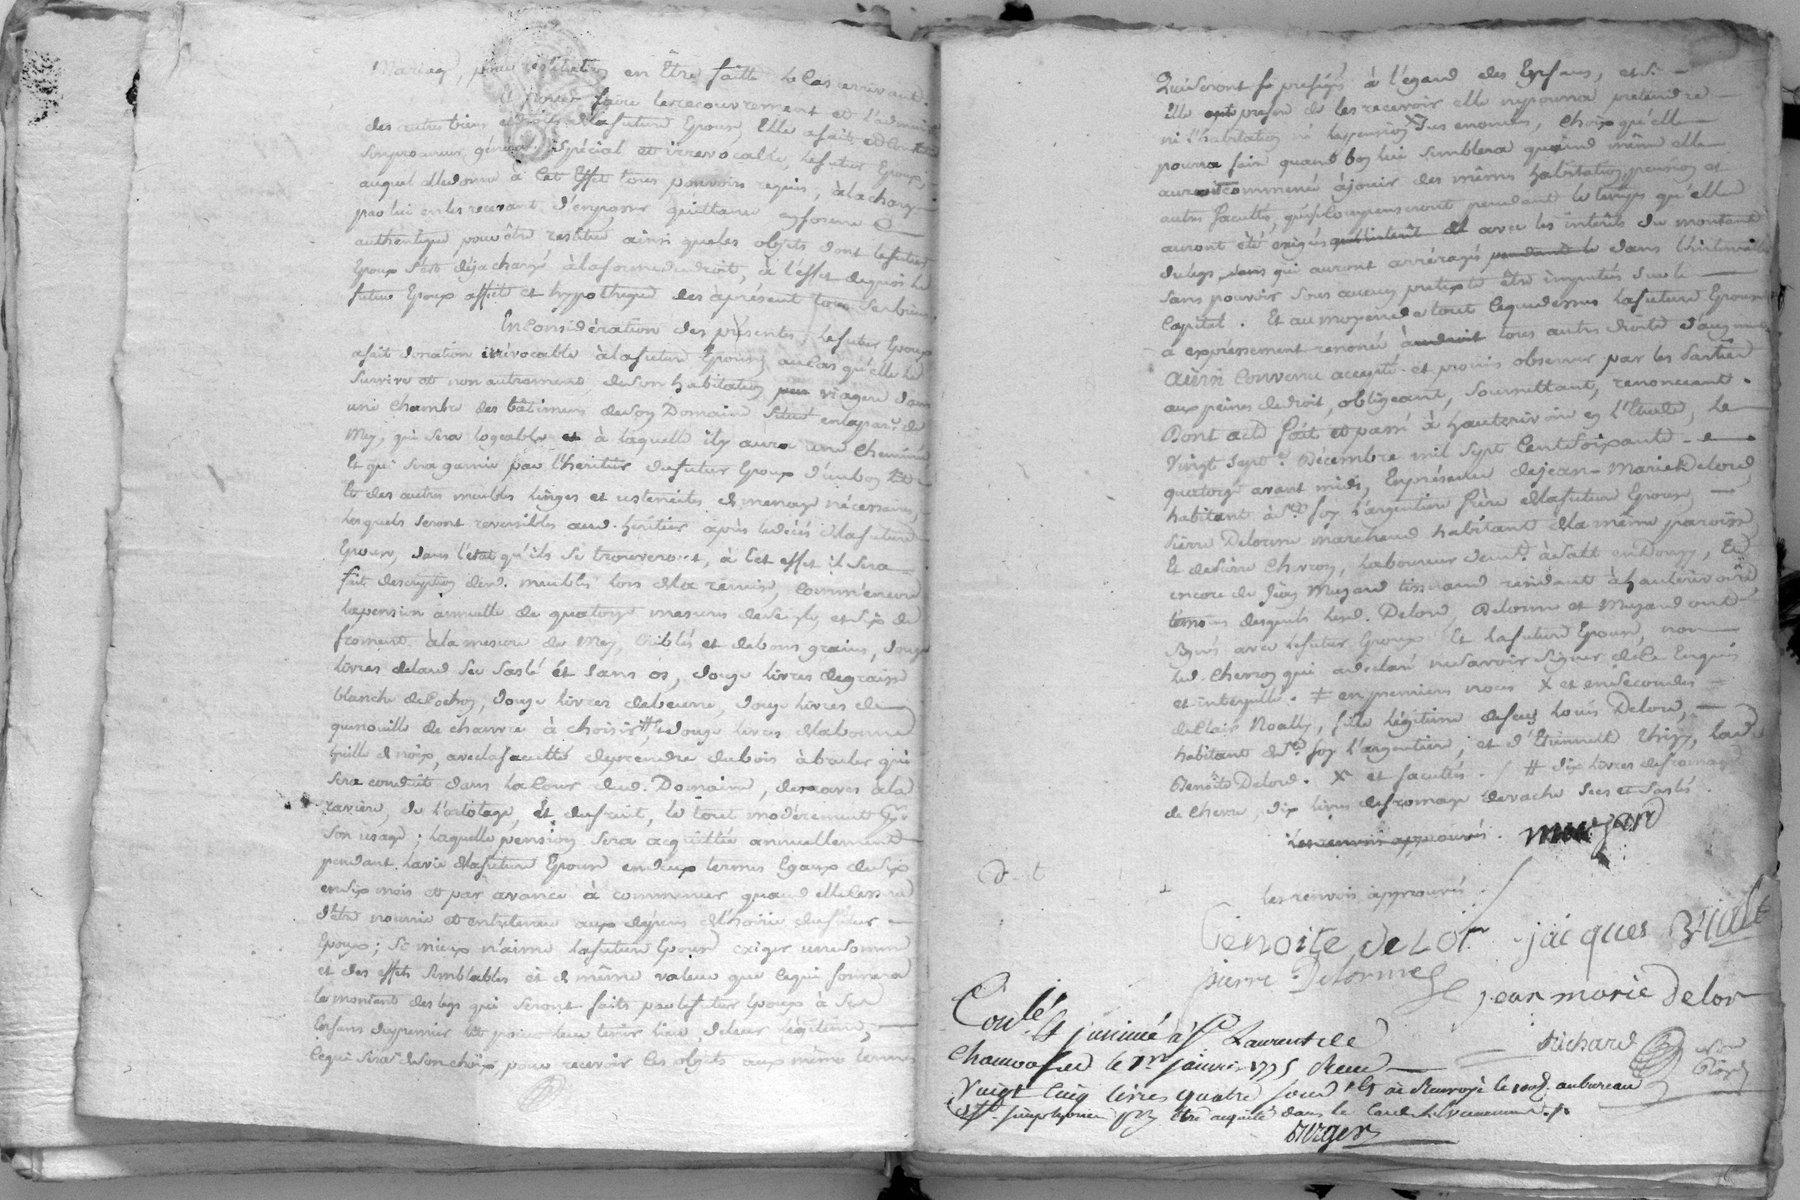 Mariag pour restitution en être faitte le cas arrivant.
Et pour faire le recouvrement et l'administ
des autres biens et droits de la future Epouse, Elle a fait et Constitué
Son procureur général, Spécial et irrévocable, le futur Epoux,
auquel elle donne à Cet Effet tous pouvoirs requis, à la charge
par lui en les recevant, d'en passer quittance en forme &
authentique pour être restitué ainsi que les objets dont le futur
Epoux s'est déja chargé à la forme du droit, à l'effet de quoi le
futur Epoux affecte et hypotheque des àprésent tous Ses biens.
En Considération des présentes, le futur Epoux
a fait donation irrévocable à la future Epouse, au Cas qu'elle lui
Survive et non autrement, de Son habitation viagere dans
une Chambre des bâtimens de Son Domaine Situé en la par.se de
Mey, qui Sera logeable et à laquelle il y aura une Cheminé
Et qui Sera garnie par l'héritier du futur Epoux d'un bon lit
Et des autres meubles linges et ustenciles de menage nécessaires,
lesquels Seront reversibles aud. héritier après le décès de la future
Epouse, dans l'état qu'ils Se trouveront, à Cet effet il Sera
fait description desd. meubles lors de la remise, Comm'encore
la pension annuelle de quatorze mesures de Seigle, et Six de
froment à la mesure de Mey, Criblés et de bons grains, douze
livres de lard Sec Sallé et Sans os, douze livres de graisse
blanche de Cochon, douze livres de beurre, douze livres de
quenouille de chanvre à choisir, # douze livres d'ha bonne
huille de noix, avec la faculté de prendre du bois à bruler qui
Sera conduit dans la Cour dud. Domaine, des raves à la
ravière, de l'ortolage, Et du fruit, le tout modérement pr.
Son usage; laquelle pension Sera acquittée annuellement
pendant la vie de la future Epouse en deux termes Egaux de Six
en Six mois et par avance à commencer quand elle Cessera
d'être nourrie et entretenue aux dépens de l'hoirie du futur
Epoux; Si mieux n'aime la future Epouse exiger une Somme
et des effets Semblables et de même valeur que Ce qui formera
le montant des legs qui Seront faits par le futur Epoux à Ses
Enfans du premier lit pour leur tenir lieu de leur légitime,
Ce qui Sera à Son choix, pour recevoir les objets aux mêmes termes
Qui Seront préfigés à l'égard des Enfans, et Si
Elle de les recevoir elle ne pourra prétendre
ni l'habitation ni la pension X Sus énoncées, Choix qu'elle
pourra faire quand bon lui Semblera quand même elle
auroit commencé à jouir des mêmes habitation, pension et
autres facultés, qui se Compenseront pendant le temps qu'elle
auront été exigés avec les intérêts du montant
du legs, qui auront arréragé dans l'intervalle
Sans pouvoir Sous aucun prétexte être imputés Sur le
Capital. Et au moyen de tout Ce que dessus la future Epouse
a expressement renoncé à tous autres droits d'augment
Ainsi Convenu accepté et promis observer par les Parties
aux peines de droit, obligeant, Soumettant, renonceant.
Dont acte fait et passé à hauterivoire en l'Etude, le
Vingt Sept.e Décembre mil Sept Cent Soixante
quatorze avant midi, En présence de jean-Marie Delord
habitant à St. foy l'argentiere frère de la future Epouse,
Pierre Delorme marchand habitant de la même paroisse
Et de Pierre Chervon, laboureur demt. à Salt en Donzy, Et
encore de Jean Muzard tisserand résidant à hauterivoire
témoins desquels lesd. Delord, Delorme et Muzard ont
Signés avec le futur Epoux Et la future Epouse, non
led. Chervon qui a déclaré ne Savoir Signer de Ce Enquis
et interpellé. # en premiers noces X et en Secondes
de Clair Noally, fille légitime de feu Louis Delord,
habitant de St. foy l'argentiere, et d' Etiennette Thizy, lad.
Benoîte Delord. X et facultés. / # dix livres de fromage
de Chevre, dix livres de fromage de vache Secs et Sallés.
Les renvois approuvés. muzard
les renvois approuvés.
Benoite deLor jacques Viall
pierre Delorme jean marie delor
Richard
Con.lé et insinué à St. Laurent de
Chamousset le 1er janvier 1775 Reçu
Vingt Cinq livres quatre sous
Berger